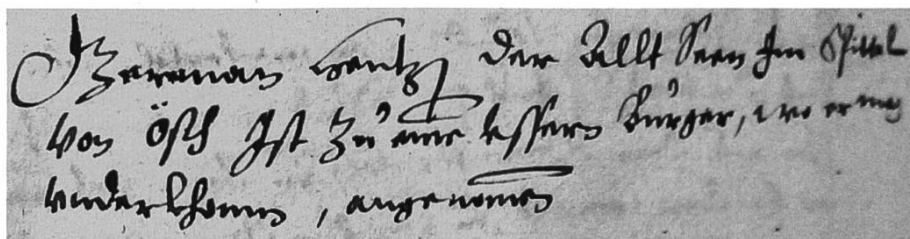 Herman Hentz der Allt Seen Im Spittel
von Ösch Ist Zu einē ussern Burger, wo er mag
underkhomen, angenomen